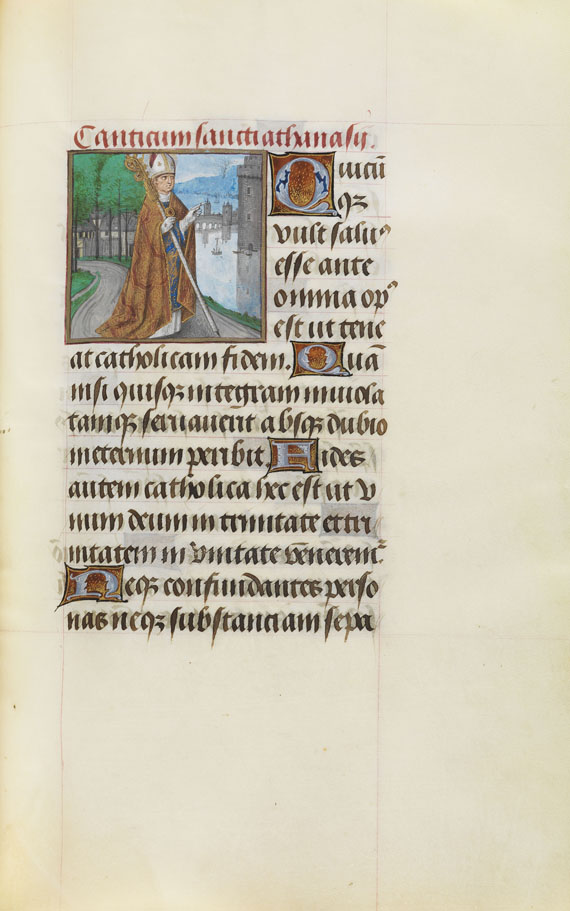 Canticum sancti athanasij.
Quicū
qꝫ
vult saluꝰ
esse ante
omnia opꝰ
est ut tene
at catholicam fidem. Quā
nisi quisqꝫ integram inuiola
tamqꝫ seruauerit absqꝫ dubio
ineternum peribit. Fides
autem catholica hec est ut v
num deum in trinitate et tri
nitatem in vnitate venerem᷑
Neqꝫ confundantes perso
nas neqꝫ substanciam sepa